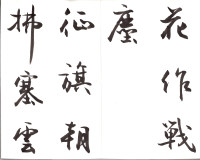 花作戰
塵
征旗朝
拂塞雲